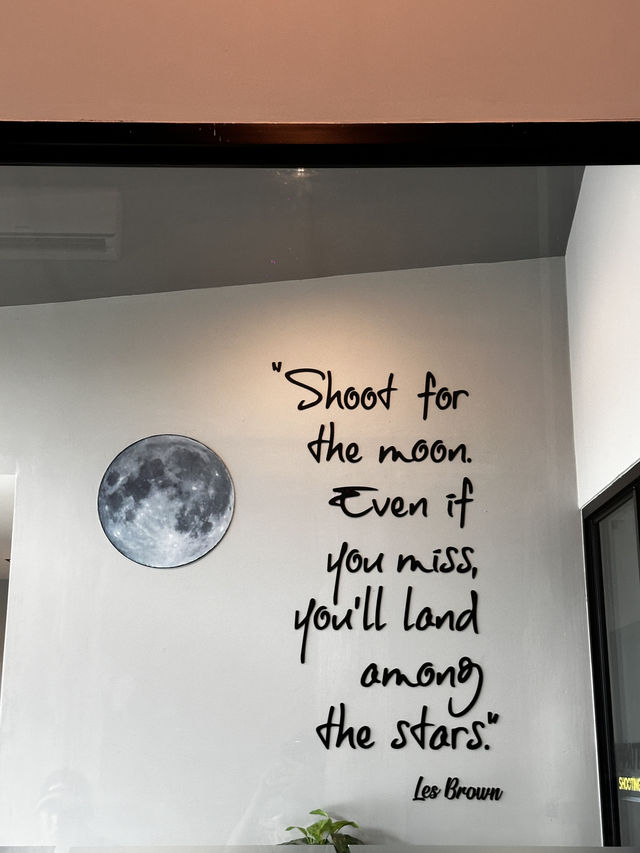 "Shoot for
the moon.
Even if
you miss,
you'll land
among
the stars."
Les Brown
SHOOTING